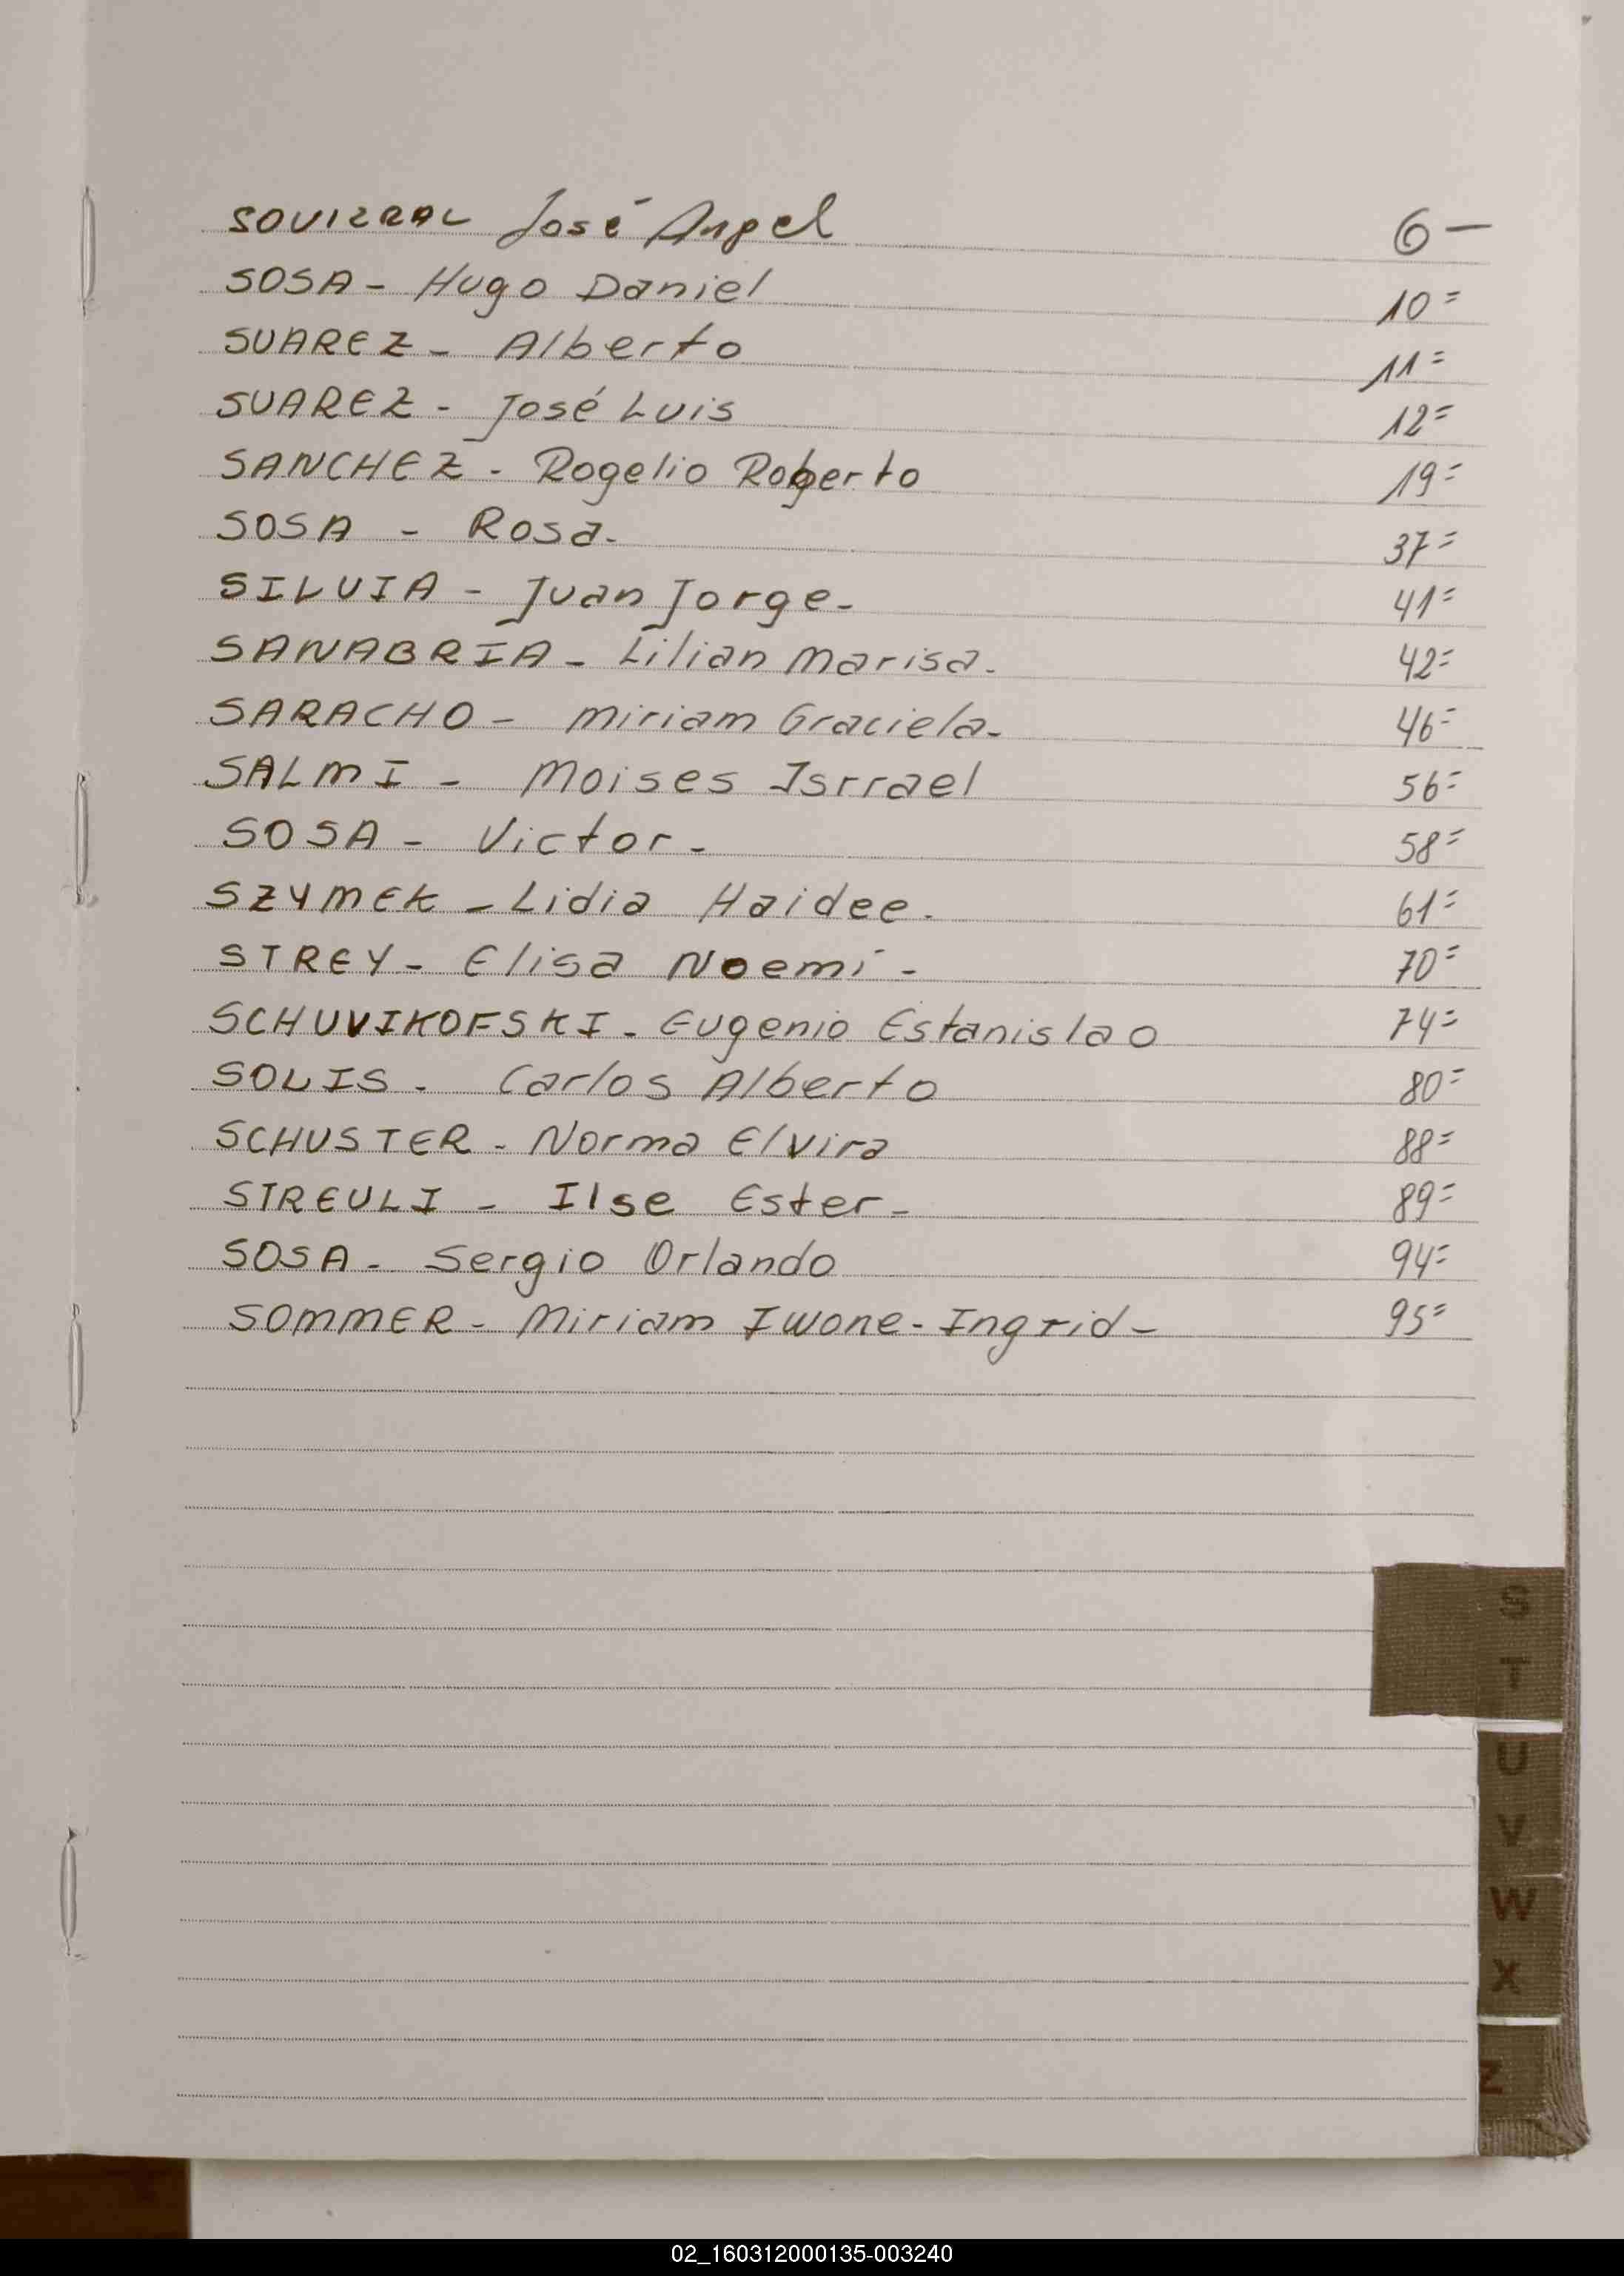 SOUIRRAL José Angel 6 -
SOSA - Hugo Daniel 10 =
SUAREZ - Alberto 11 =
SUAREZ - José Luis 12 =
SANCHEZ - Rogelio Roberto 19 =
SOSA - Rosa - 37 =
SILVIA - Juan Jorge - 41 =
SANABRIA - Lilian Marisa - 42 =
SARACHO - Miriam Graciela - 46 =
SALMI - Moises Isrrael 56 =
SOSA - Victor - 58 =
SZYMEK - Lidia Haidee - 61 =
STREY - Elisa Noemí - 70 =
SCHUVIKOFSKI - Eugenio Estanislao 74 =
SOLIS - Carlos Alberto 80 =
SCHUSTER - Norma Elvira 88 =
STREULI - Ilse Ester - 89 =
SOSA - Sergio Orlando 94 =
SOMMER - Miriam Iwone - Ingrid - 95 =
S
T
U
V
W
X
Z
02_160312000135-003240